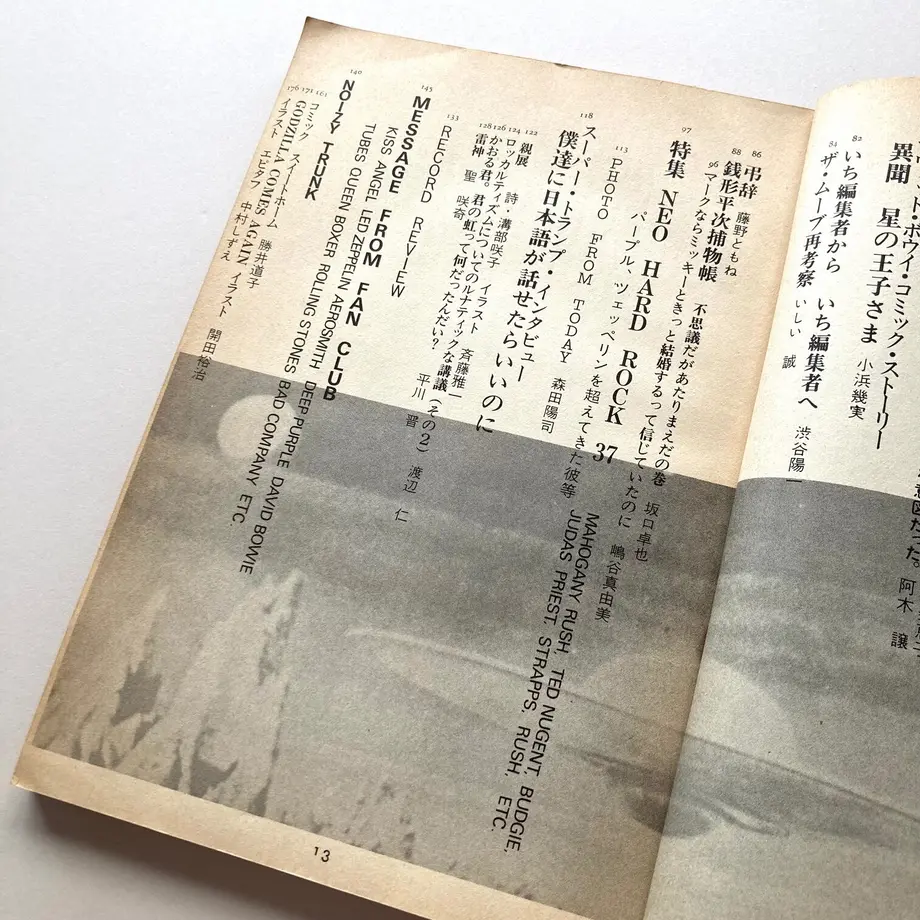 異聞 星の王子さま 小浜幾実
82
いち編集者から いち編集者へ 渋谷陽一
84
ザ・ムーブ再考察 いしい 誠
阿木 譲
86
弔辞 藤野ともね
88
銭形平次捕物帳 不思議だがあたりまえだの巻 坂口卓也
96
マークならミッキーときっと結婚するって信じていたのに 嶋谷真由美
97
特集 NEO HARD ROCK 37
パープル、ツェッペリンを超えてきた彼等
MAHOGANY RUSH, TED NUGENT, BUDGIE,
JUDAS PRIEST, STRAPPS, RUSH, ETC.
113
PHOTO FROM TODAY 森田陽司
118
スーパー・トランプ・インタビュー
僕達に日本語が話せたらいいのに
122
親展 詩・溝部咲子 イラスト 斉藤雅一
124
ロッカルティズムについてのルナティックな講議(その2) 渡辺 仁
126
かおる君。君の虹って何だったんだい? 平川 晋
128
雷神 聖 咲奇
133
RECORD REVIEW
145
MESSAGE FROM FAN CLUB
KISS ANGEL LED ZEPPELIN AEROSMITH DEEP PURPLE DAVID BOWIE
TUBES QUEEN BOXER ROLLING STONES BAD COMPANY ETC.
140
NOIZY TRUNK
161
コミック スイートホーム 勝井道子
171
GODZILLA COMES AGAIN イラスト 開田裕治
176
イラスト エピタフ 中村しずえ
13